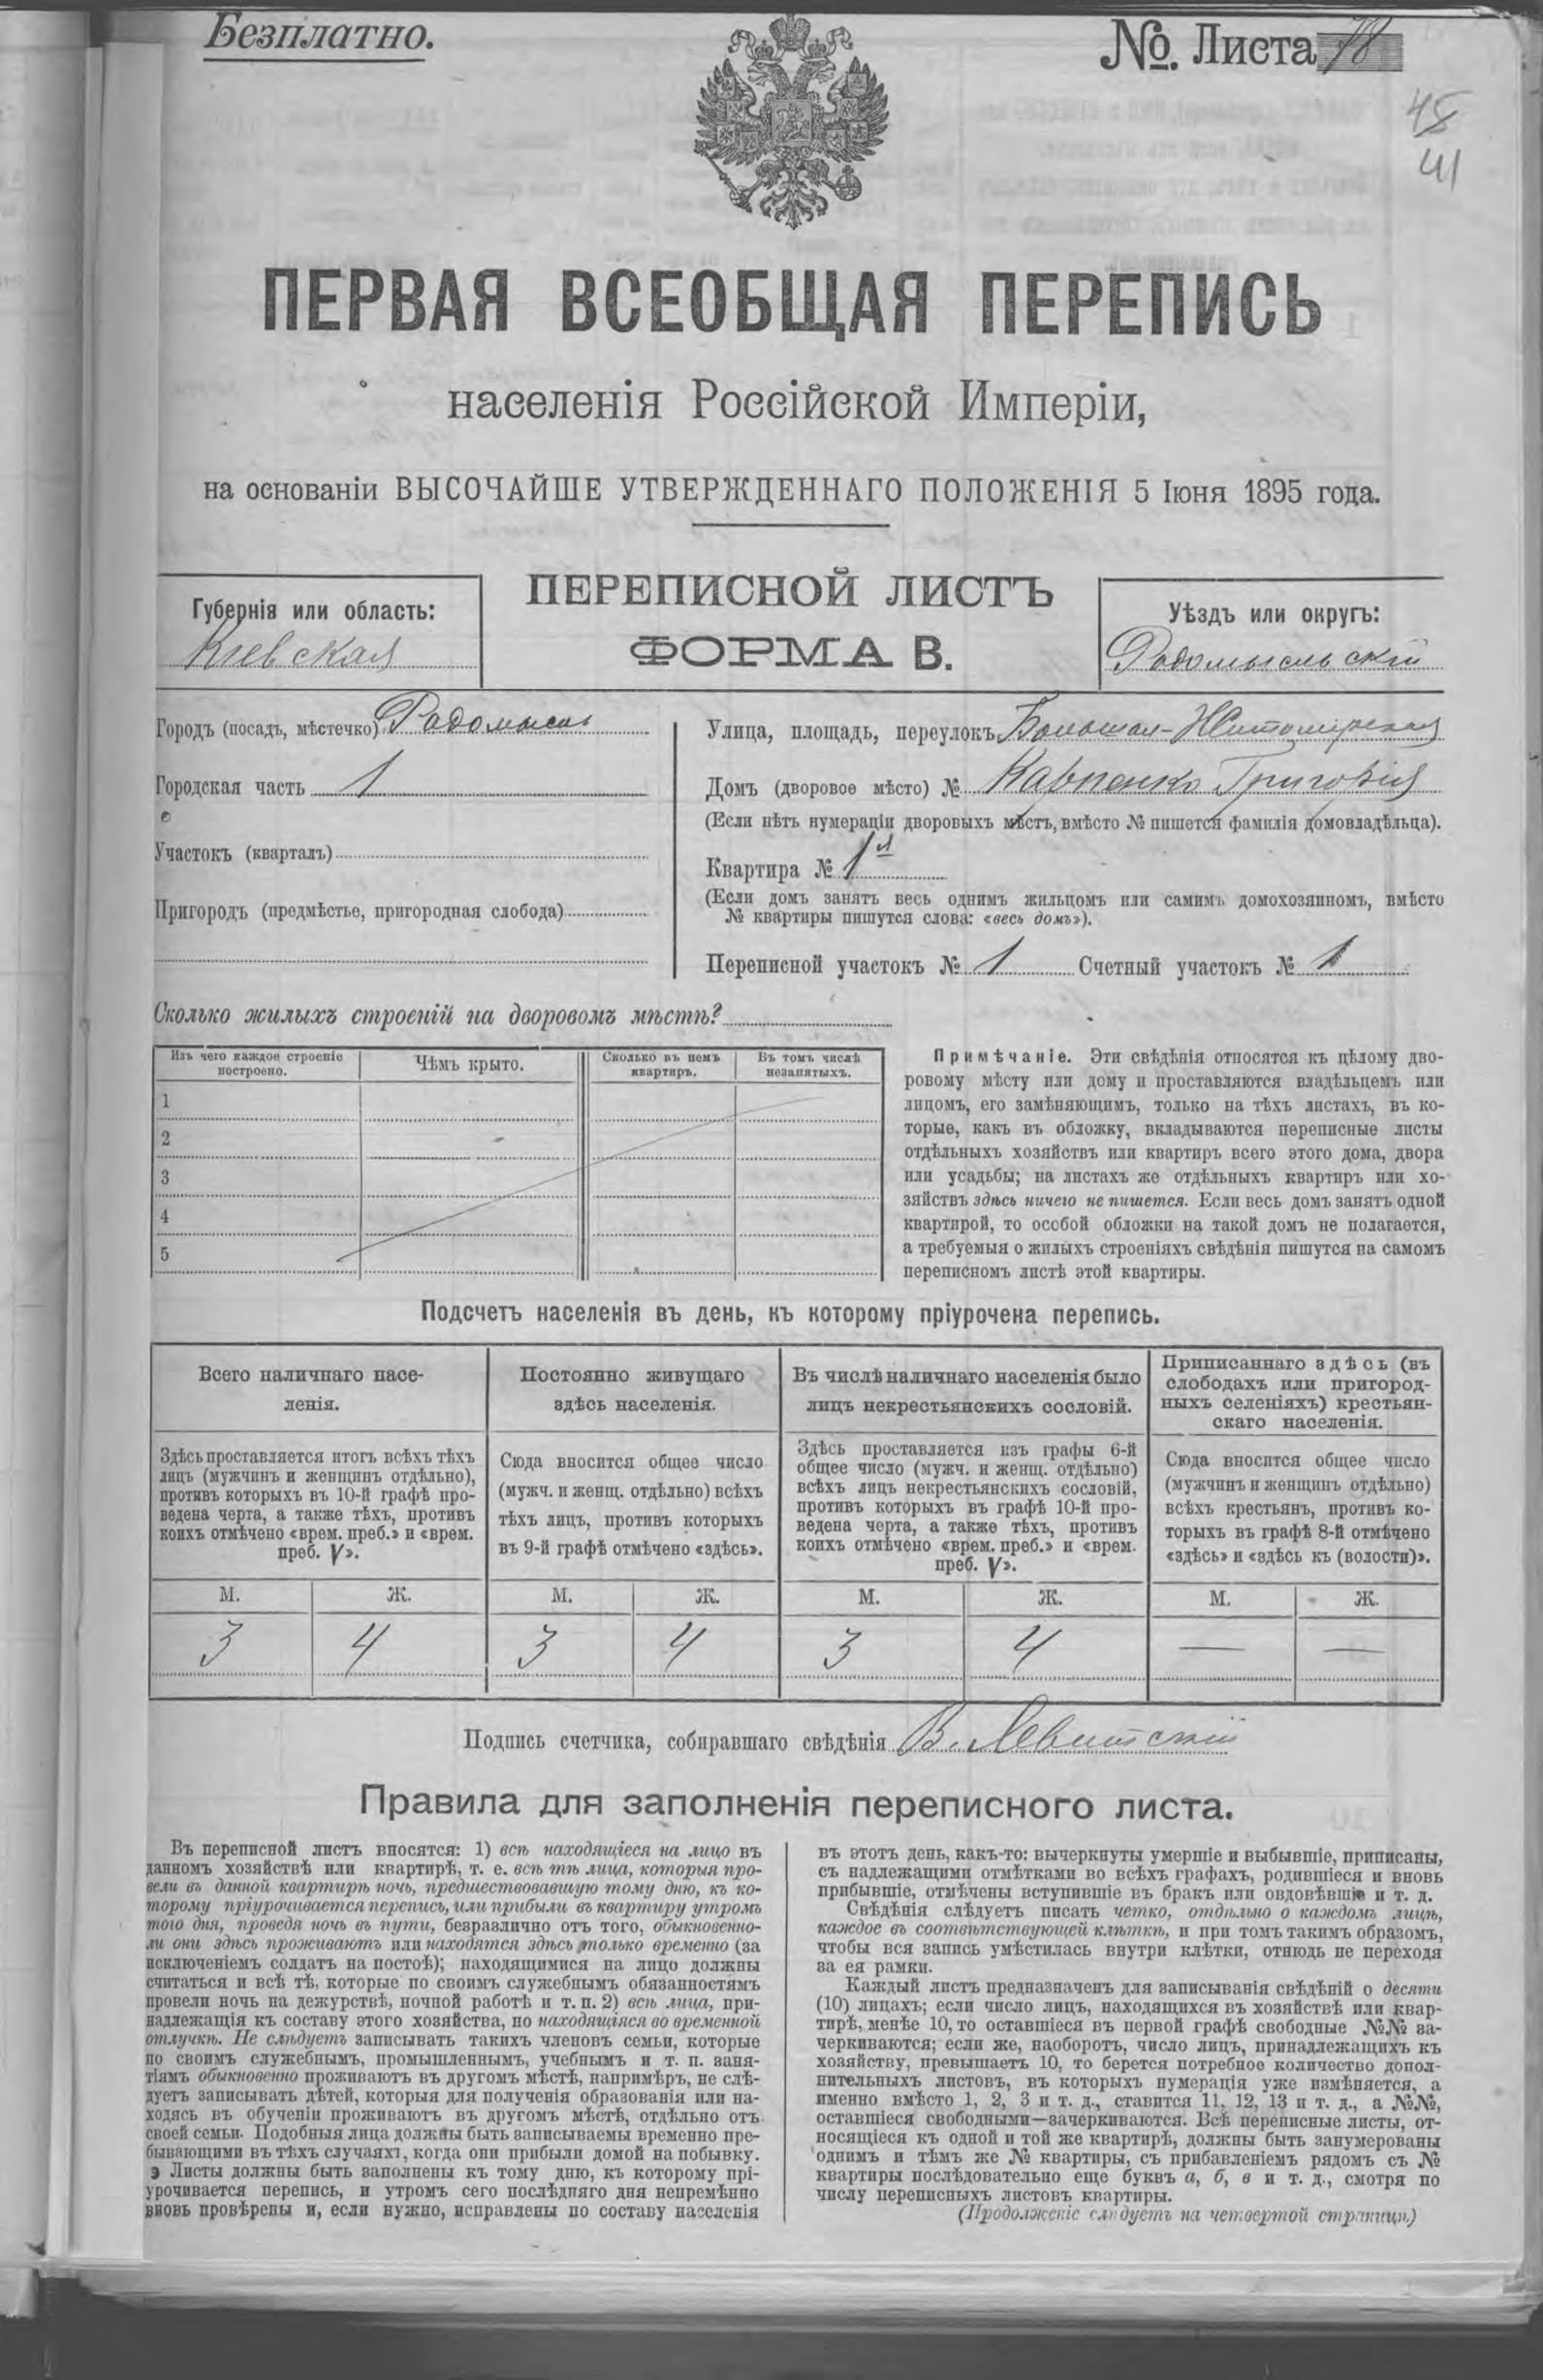 Безплатно.
№. Листа 78
45
41
ПЕРВАЯ ВСЕОБЩАЯ ПЕРЕПИСЬ
населенія Россійской Имперіи,
на основаніи ВЫСОЧАЙШЕ УТВЕРЖДЕННАГО ПОЛОЖЕНІЯ 5 Іюня 1895 года.
Губернія или область:
Кіевская
ПЕРЕПИСНОЙ ЛИСТЪ
ФОРМА В.
Уѣздъ или округъ:
Радомысльскій
Городъ (посадъ, мѣстечко) Радомысль
Городская часть 1
Участокъ (кварталъ)
Пригородъ (предмѣстье, пригородная слобода)
Улица, площадь, переулокъ Большая-Житомирская
Домъ (дворовое мѣсто) № Карпенко
(Если нѣтъ нумераціи дворовыхъ мѣстъ, вмѣсто № пишется фамилія домовладѣльца).
Квартира № 1
(Если домъ занятъ весь однимъ жильцомъ или самимъ домохозяиномъ, вмѣсто
№ квартиры пишутся слова: «весь домъ»).
Переписной участокъ № 1 Счетный участокъ № 1
Сколько жилыхъ строеній на дворовомъ мѣстѣ?
Изъ чего каждое строеніе
построено.
Чѣмъ крыто.
Сколько въ немъ
квартиръ.
Въ томъ числѣ
незанятыхъ.
1
2
3
4
5
Примѣчаніе. Эти свѣдѣнія относятся къ цѣлому дво-
ровому мѣсту или дому и проставляются владѣльцемъ или
лицомъ, его замѣняющимъ, только на тѣхъ листахъ, въ ко-
торые, какъ въ обложку, вкладываются переписные листы
отдѣльныхъ хозяйствъ или квартиръ всего этого дома, двора
или усадьбы; на листахъ же отдѣльныхъ квартиръ или хо-
зяйствъ здѣсь ничего не пишется. Если весь домъ занятъ одной
квартирой, то особой обложки на такой домъ не полагается,
а требуемыя о жилыхъ строеніяхъ свѣдѣнія пишутся на самомъ
переписномъ листѣ этой квартиры.
Подсчетъ населенія въ день, къ которому пріурочена перепись.
Всего наличнаго насе-
ленія.
Здѣсь проставляется итогъ всѣхъ тѣхъ
лицъ (мужчинъ и женщинъ отдѣльно),
противъ которыхъ въ 10-й графѣ про-
ведена черта, а также тѣхъ, противъ
коихъ отмѣчено «врем. преб.» и «врем.
преб. V».
Постоянно живущаго
здѣсь населенія.
Сюда вносится общее число
(мужч. и женщ. отдѣльно) всѣхъ
тѣхъ лицъ, противъ которыхъ
въ 9-й графѣ отмѣчено «здѣсь».
Въ числѣ наличнаго населенія было
лицъ некрестьянскихъ сословій.
Здѣсь проставляется изъ графы 6-й
общее число (мужч. и женщ. отдѣльно)
всѣхъ лицъ некрестьянскихъ сословій,
противъ которыхъ въ графѣ 10-й про-
ведена черта, а также тѣхъ, противъ
коихъ отмѣчено «врем. преб.» и «врем.
преб. V».
Приписаннаго здѣсь (въ
слободахъ или пригород-
ныхъ селеніяхъ) крестьян-
скаго населенія.
Сюда вносится общее число
(мужчинъ и женщинъ отдѣльно)
всѣхъ крестьянъ, противъ ко-
торыхъ въ графѣ 8-й отмѣчено
«здѣсь» и «здѣсь къ (волости)».
М. Ж. М. Ж. М. Ж. М. Ж.
3 4 3 4 3 4 — —
Подпись счетчика, собиравшаго свѣдѣнія В. Левитскій
Правила для заполненія переписного листа.
Въ переписной листъ вносятся: 1) всѣ находящіеся на лицо въ
данномъ хозяйствѣ или квартирѣ, т. е. всѣ тѣ лица, которыя про-
вели въ данной квартирѣ ночь, предшествовавшую тому дню, къ ко-
торому пріурочивается перепись, или прибыли въ квартиру утромъ
того дня, проведя ночь въ пути, безразлично отъ того, обыкновенно-
ли они здѣсь проживаютъ или находятся здѣсь только временно (за
исключеніемъ солдатъ на постоѣ); находящимися на лицо должны
считаться и всѣ тѣ, которые по своимъ служебнымъ обязанностямъ
провели ночь на дежурствѣ, ночной работѣ и т. п. 2) всѣ лица, при-
надлежащія къ составу этого хозяйства, но находящіяся во временной
отлучкѣ. Не слѣдуетъ записывать такихъ членовъ семьи, которые
по своимъ служебнымъ, промышленнымъ, учебнымъ и т. п. заня-
тіямъ обыкновенно проживаютъ въ другомъ мѣстѣ, напримѣръ, не слѣ-
дуетъ записывать дѣтей, которыя для полученія образованія или на-
ходясь въ обученіи проживаютъ въ другомъ мѣстѣ, отдѣльно отъ
своей семьи. Подобныя лица должны быть записываемы временно пре-
бывающими въ тѣхъ случаяхъ, когда они прибыли домой на побывку.
Листы должны быть заполнены къ тому дню, къ которому прі-
урочивается перепись, и утромъ сего послѣдняго дня непремѣнно
вновь провѣрены и, если нужно, исправлены по составу населенія
въ этотъ день, какъ-то: вычеркнуты умершіе и выбывшіе, приписаны,
съ надлежащими отмѣтками во всѣхъ графахъ, родившіеся и вновь
прибывшіе, отмѣчены вступившіе въ бракъ или овдовѣвшіе и т. д.
Свѣдѣнія слѣдуетъ писать четко, отдѣльно о каждомъ лицѣ,
каждое въ соотвѣтствующей клѣткѣ, и при томъ такимъ образомъ,
чтобы вся запись умѣстилась внутри клѣтки, отнюдь не переходя
за ея рамки.
Каждый листъ предназначенъ для записыванія свѣдѣній о десяти
(10) лицахъ; если число лицъ, находящихся въ хозяйствѣ или квар-
тирѣ, менѣе 10, то оставшіеся въ первой графѣ свободные №№ за-
черкиваются; если же, наоборотъ, число лицъ, принадлежащихъ къ
хозяйству, превышаетъ 10, то берется потребное количество допол-
нительныхъ листовъ, въ которыхъ нумерація уже измѣняется, а
именно вмѣсто 1, 2, 3 и т. д., ставится 11, 12, 13 и т. д., а №№,
оставшіеся свободными—зачеркиваются. Всѣ переписные листы, от-
носящіеся къ одной и той же квартирѣ, должны быть занумерованы
однимъ и тѣмъ же № квартиры, съ прибавленіемъ рядомъ съ №
квартиры послѣдовательно еще буквъ а, б, в и т. д., смотря по
числу переписныхъ листовъ квартиры.
(Продолженіе слѣдуетъ на четвертой страницѣ)